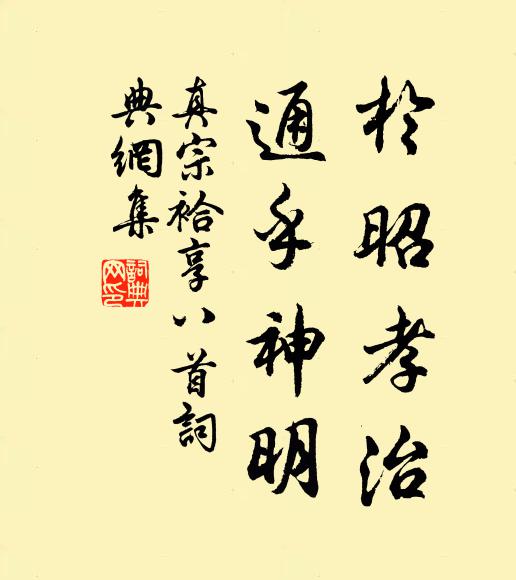 於昭孝治
通乎神明
真宗祫享八首詞
典網集
詞典
网印